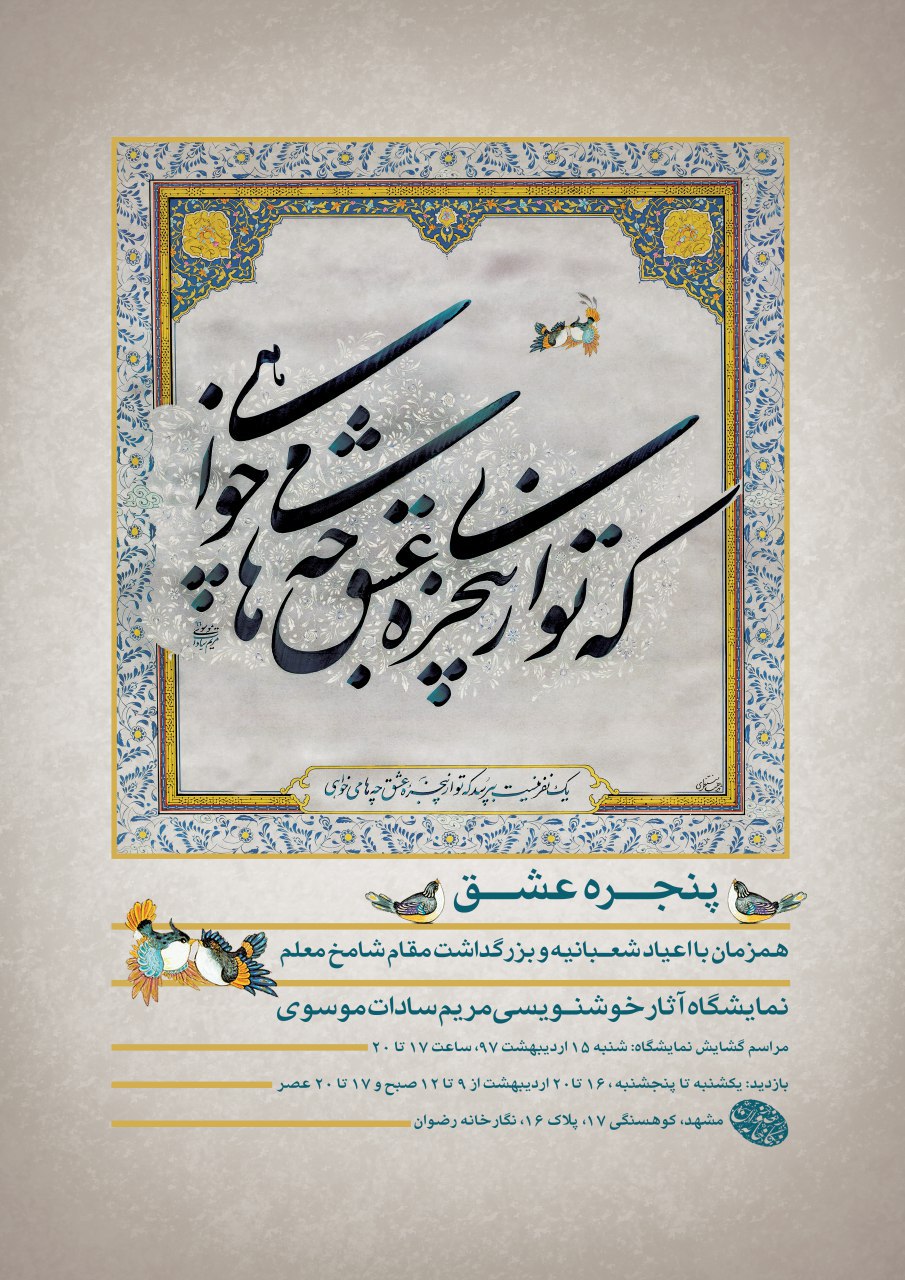 که تو از پنجره‌ی عشق چه ها می خواهی
مریم سادات موسوی
یک نفر نیست بپرسد که تو از پنجره عشق چه ها می خواهی
پنجره عشق
همزمان با اعیاد شعبانیه و بزرگداشت مقام شامخ معلم
نمایشگاه آثار خوشنویسی مریم سادات موسوی
مراسم گشایش نمایشگاه: شنبه ۱۵ اردیبهشت ۹۷، ساعت ۱۷ تا ۲۰
بازدید: یکشنبه تا پنجشنبه، ۱۶ تا ۲۰ اردیبهشت از ۹ تا ۱۲ صبح و ۱۷ تا ۲۰ عصر
مشهد، کوهسنگی ۱۷، پلاک ۱۶، نگارخانه رضوان